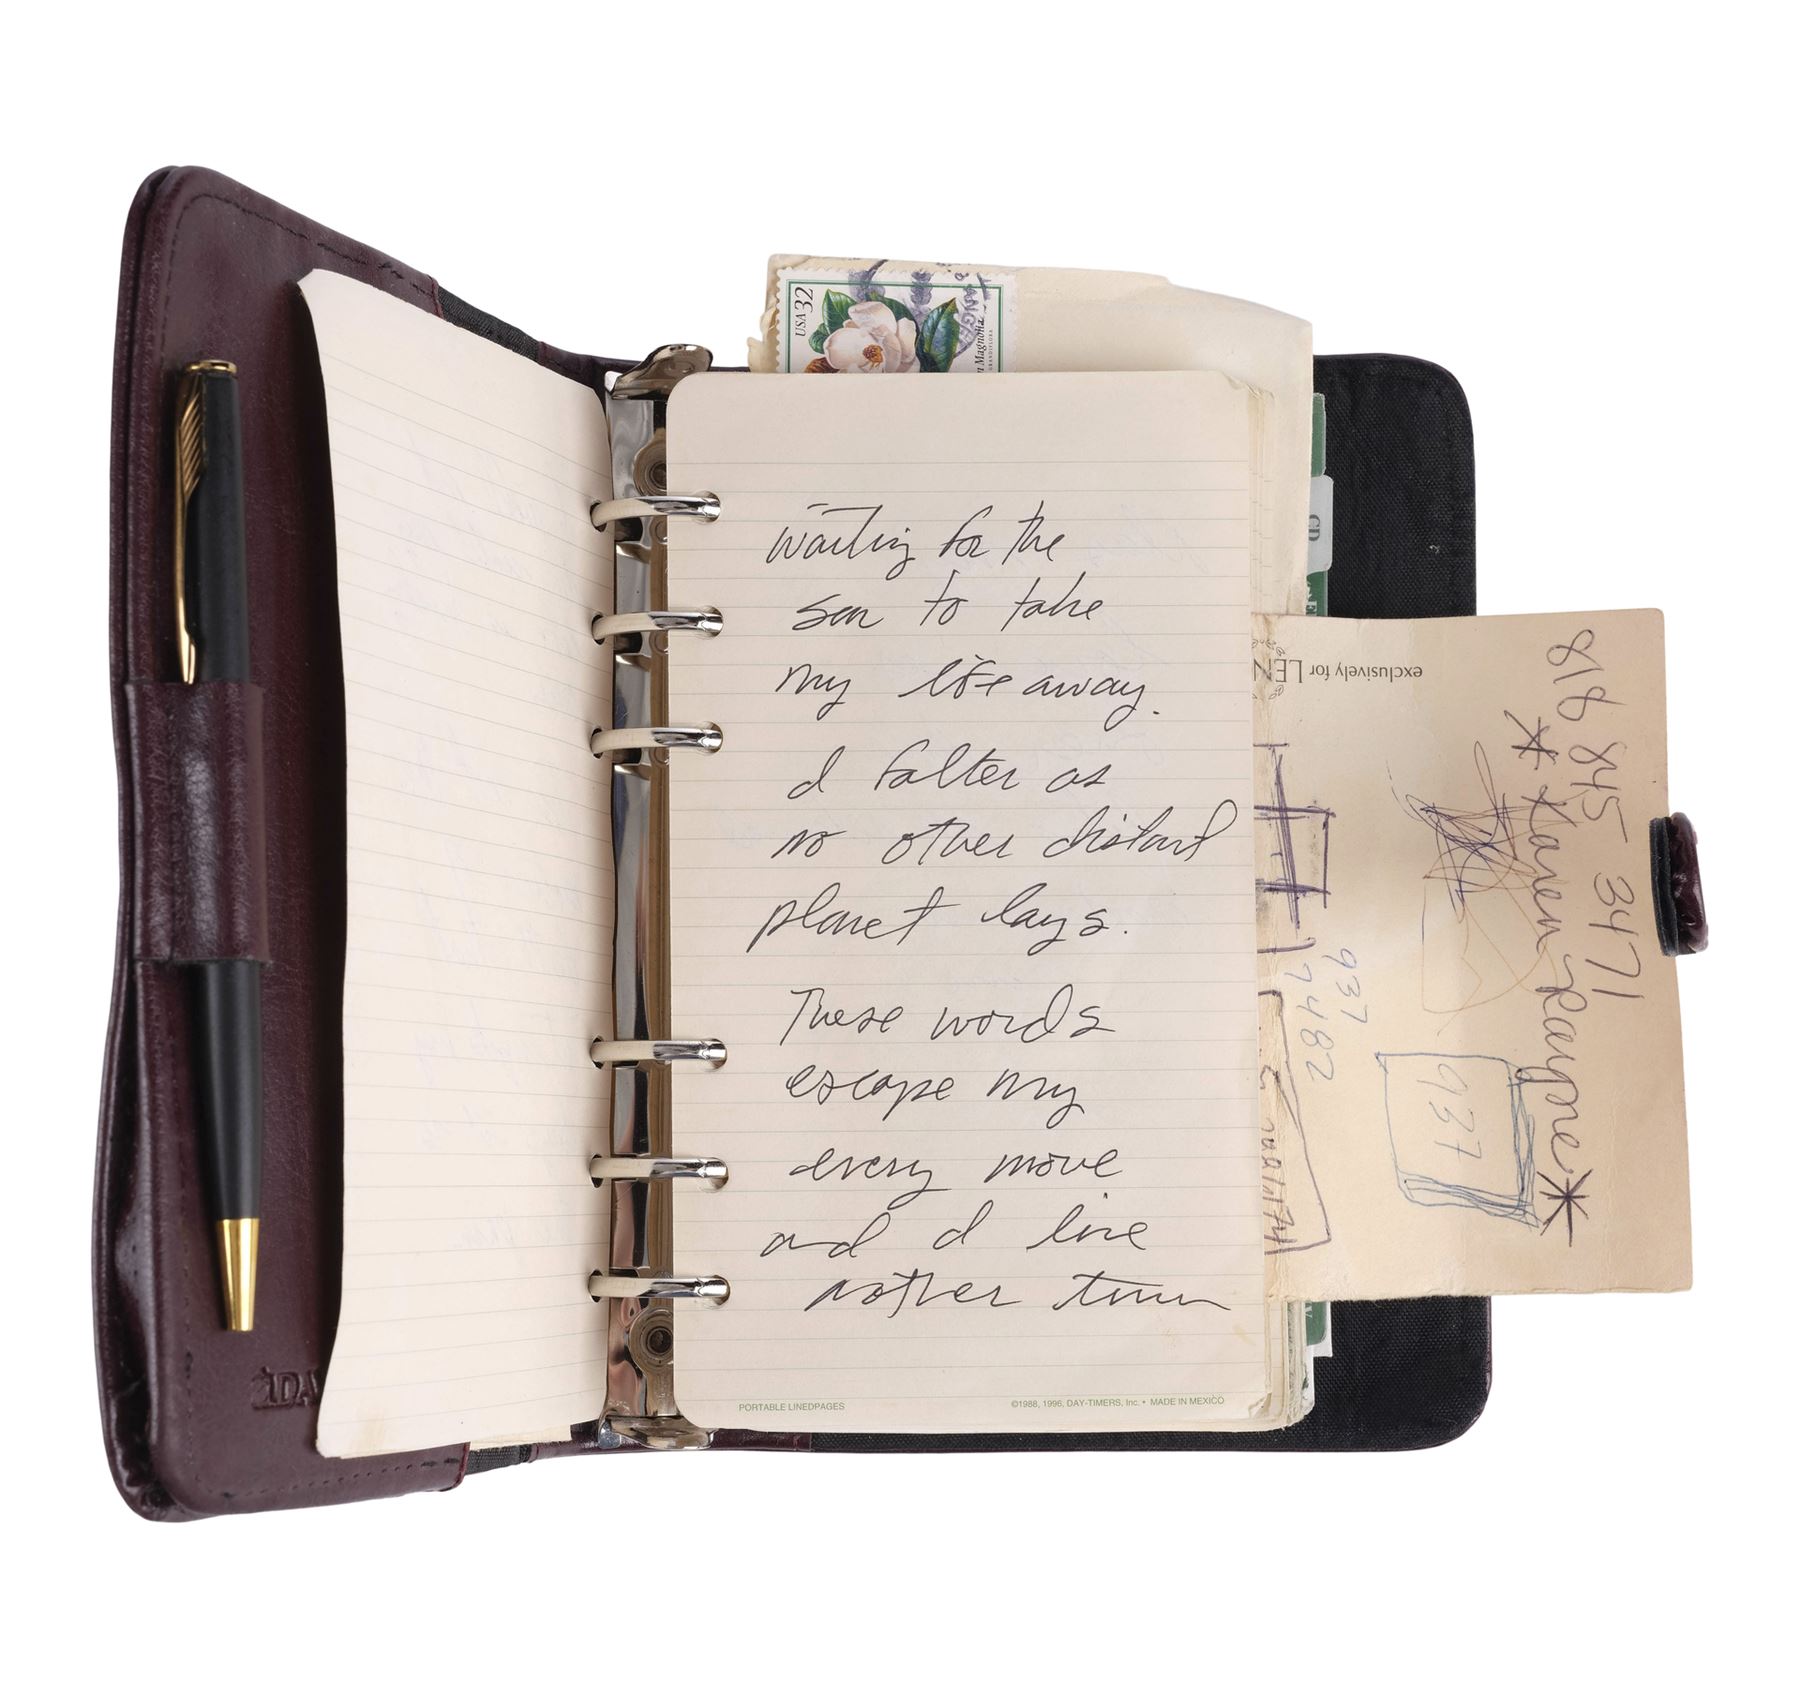 USA 32
Magnolia
GRANDIFLORA
waiting for the
sea to take
my life away.
I falter as
no other distant
planet lays.
These words
escape my
every move
and I live
another time
PORTABLE LINEDPAGES
©1988, 1996, DAY-TIMERS, Inc. • MADE IN MEXICO
CD
exclusively for LEN
818 845 3471
*Karen Rayne*
937
7482
937